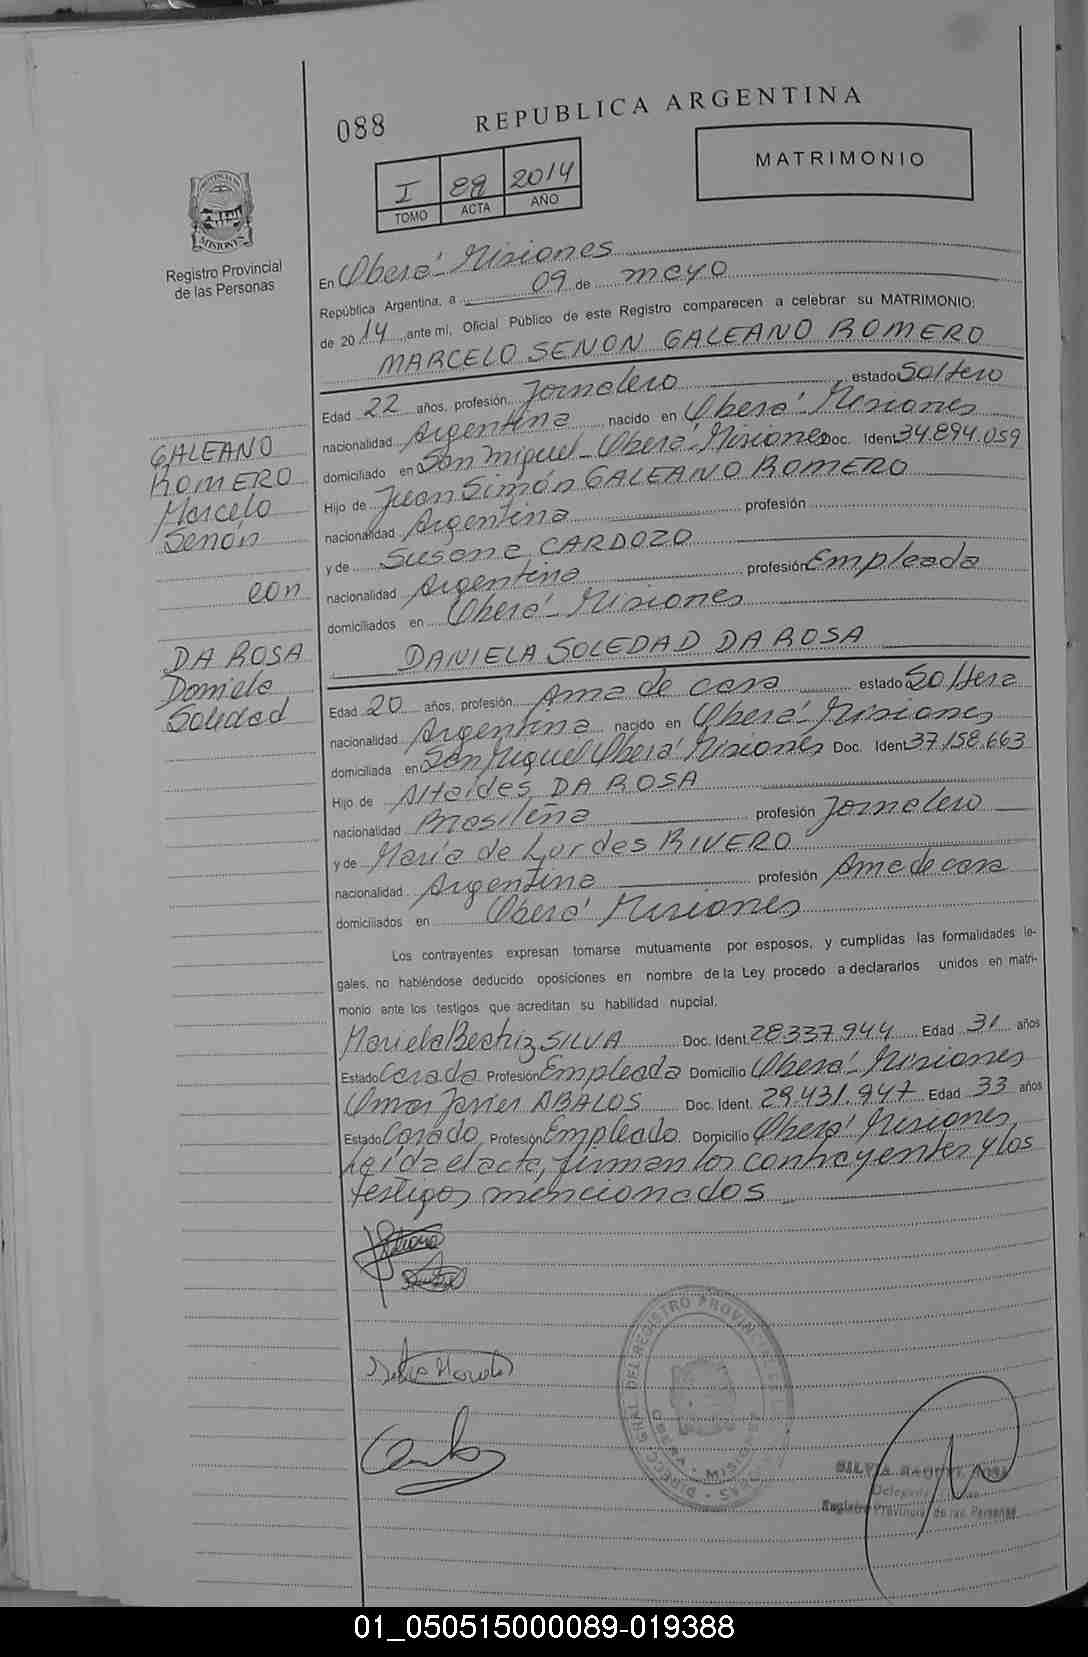 088
REPUBLICA ARGENTINA
I 89 2014
TOMO ACTA AÑO
MATRIMONIO
PROVINCIA DE
MISIONES
Registro Provincial
de las Personas
En Oberá - Misiones
República Argentina, a 09 de mayo
de 2014, ante mí, Oficial Público de este Registro comparecen a celebrar su MATRIMONIO:
MARCELO SENON GALEANO ROMERO
Edad 22 años, profesión Jornalero estado Soltero
nacionalidad Argentina nacido en Oberá Misiones
domiciliado en San Miguel - Oberá - Misiones Doc. Ident. 34.894.059
Hijo de Juan Simón GALEANO ROMERO
nacionalidad Argentina profesión
y de Susana CARDOZO
nacionalidad Argentina profesión Empleada
domiciliados en Oberá - Misiones
GALEANO
ROMERO
Marcelo
Senón
con
DA ROSA
Daniela
Soledad
DANIELA SOLEDAD DA ROSA
Edad 20 años, profesión Ama de casa estado Soltera
nacionalidad Argentina nacido en Oberá - Misiones
domiciliada en San Miguel Oberá Misiones Doc. Ident. 37.158.663
Hijo de Altaides DA ROSA
nacionalidad Brasileña profesión Jornalero
y de María de Lurdes RIVERO
nacionalidad Argentina profesión Ama de casa
domiciliados en Oberá Misiones
Los contrayentes expresan tomarse mutuamente por esposos, y cumplidas las formalidades le-
gales, no habiéndose deducido oposiciones en nombre de la Ley procedo a declararlos unidos en matri-
monio ante los testigos que acreditan su habilidad nupcial.
Mariela Beatriz SILVA Doc. Ident. 28337.944 Edad 31 años
Estado Casada Profesión Empleada Domicilio Oberá - Misiones
Omar Javier ABALOS Doc. Ident. 29.431.947 Edad 33 años
Estado Casado Profesión Empleado Domicilio Oberá Misiones
Leída el acta, firman los contrayentes y los
testigos mencionados
DEL REGISTRO PROVINCIAL
OBERA - MISIONES
SILVIA RAQUEL
Registro Provincial de las Personas
01_050515000089-019388